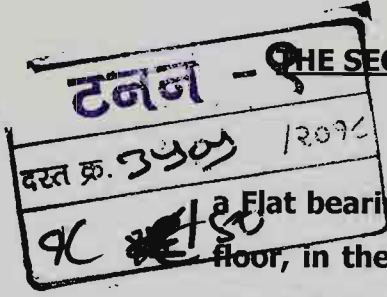 टनन - १ THE SEC
दस्त क्र. /२०१८
१८ a Flat beari
floor, in the